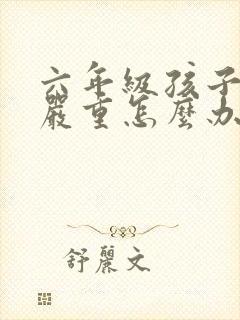 六年級孩子
嚴重怎麼办
舒麗文